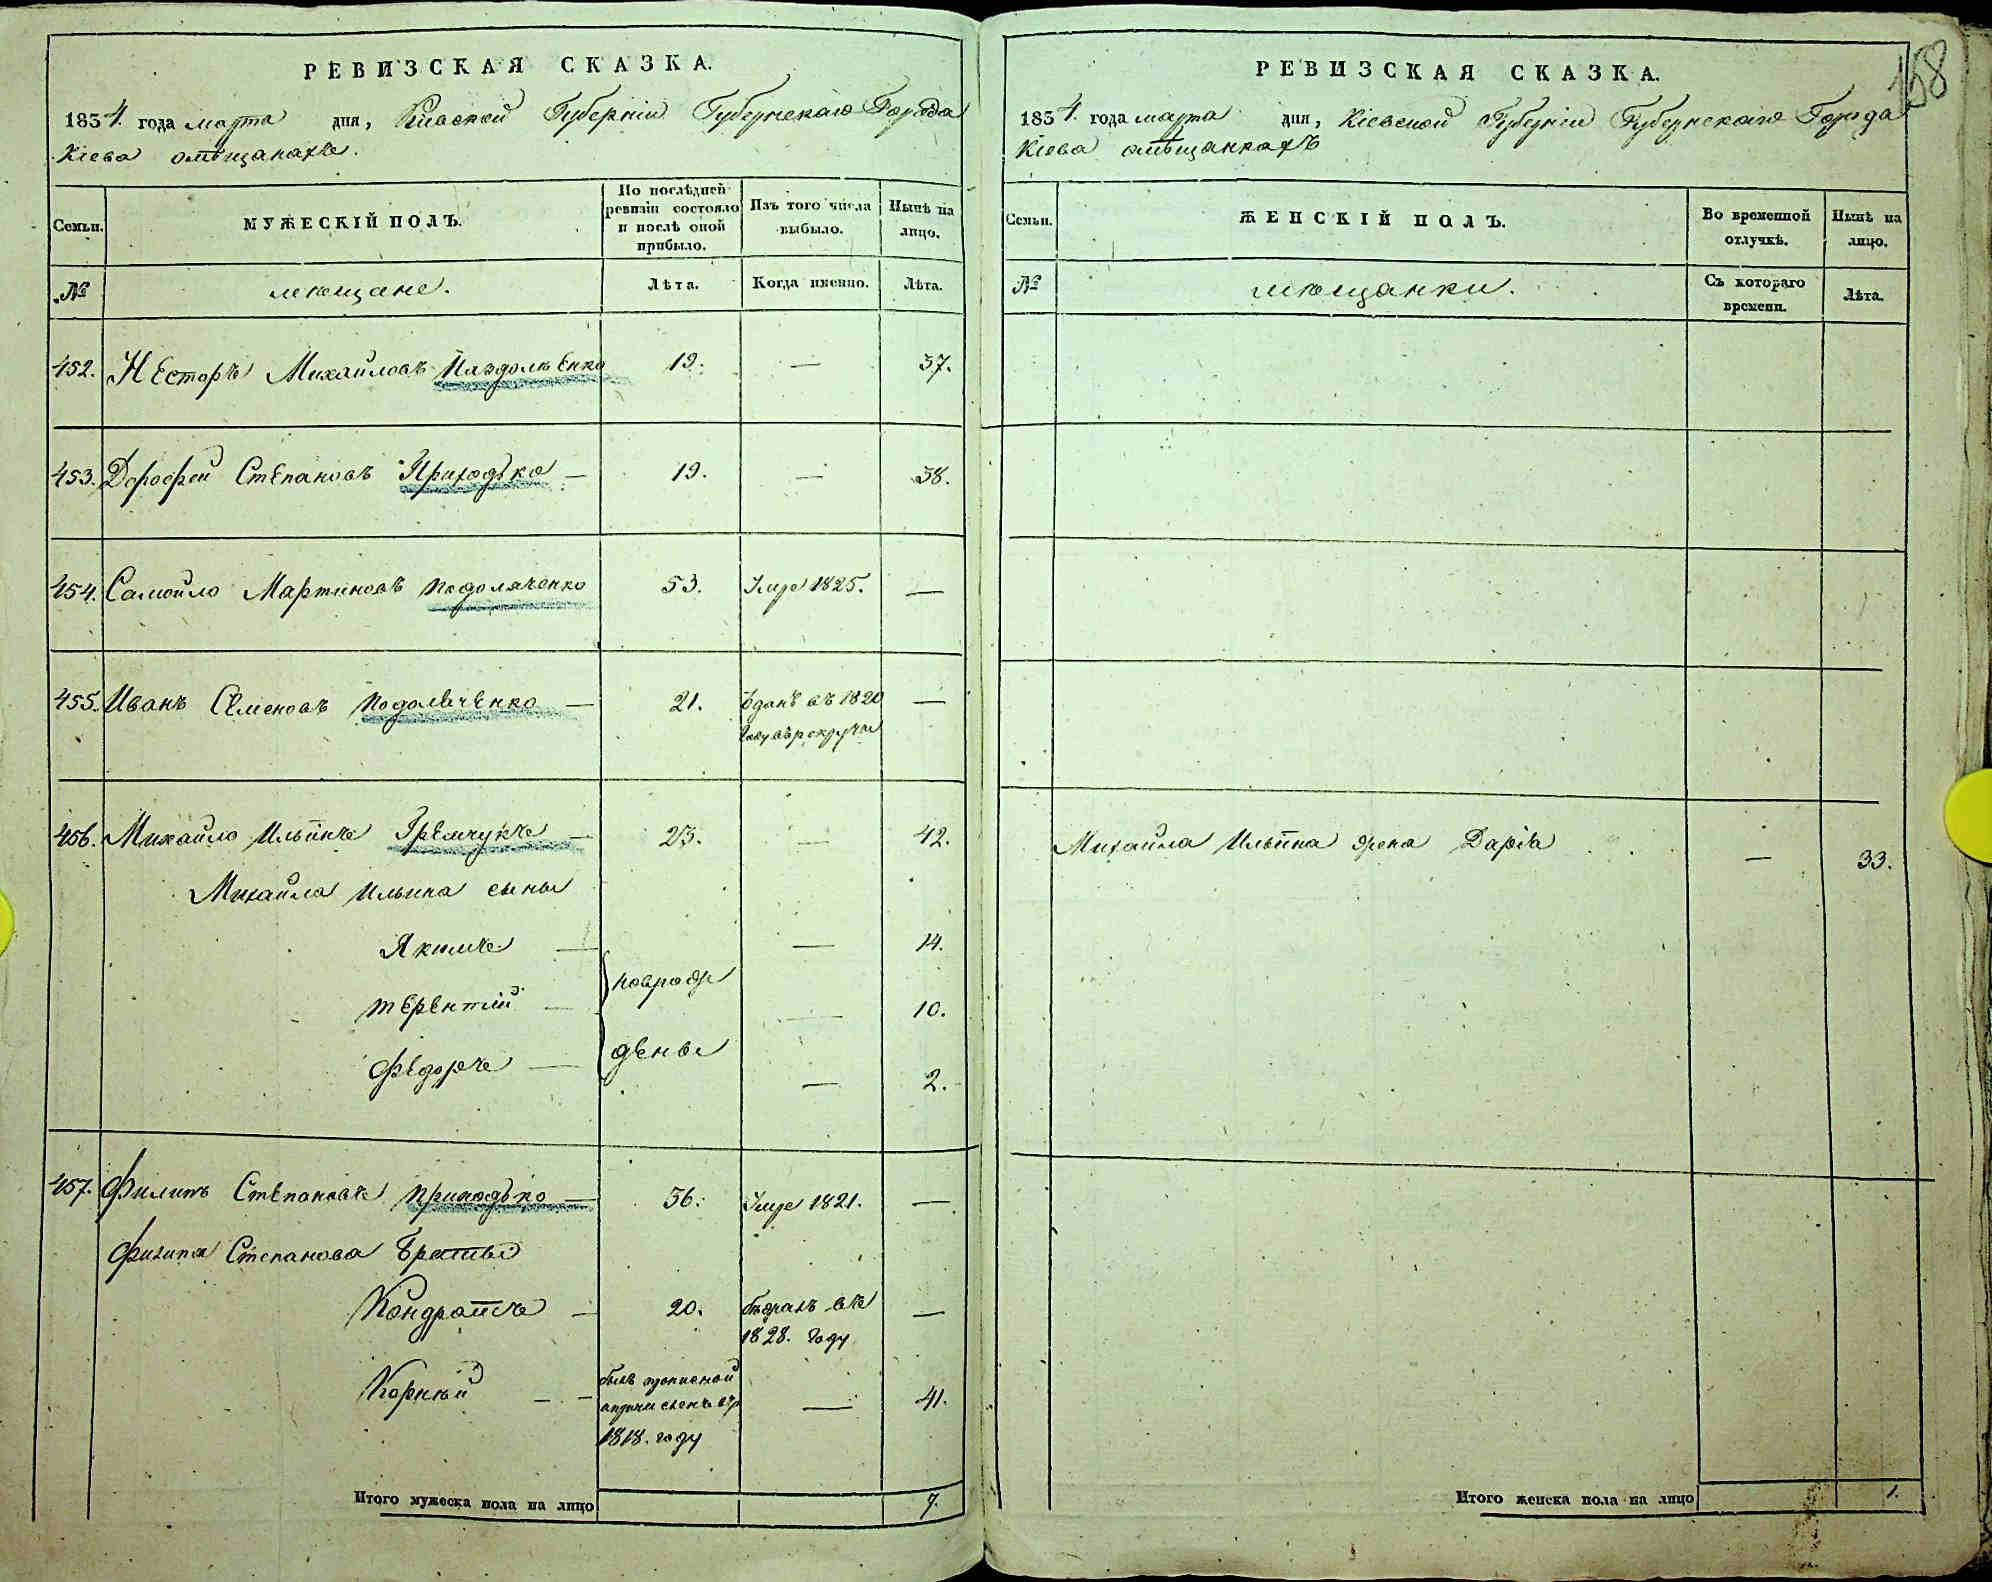 РЕВИЗСКАЯ СКАЗКА.
1834 года марта дня, Киевской Губерніи Губернскаго Города
Кіева омѣщанахъ.
Семьи.
МУЖЕСКІЙ ПОЛЪ.
По послѣдней ревизіи состояло и послѣ оной прибыло.
Изъ того числа выбыло.
Нынѣ на лицо.
№
мещане.
Лѣта.
Когда именно.
Лѣта.
452. Несторъ Михайловъ 19. — 37.
453. Дорофей Степановъ Приходько — 19. — 38.
454. Самойло Мартиновъ Подоляченко 53. Умре 1825. —
455. Иванъ Семеновъ Подоляченко — 21. Зданъ въ 1820 —
году въ рекруты
456. Михайло Ильинъ Гремчукъ — 23. — 42.
Михайла Ильина сыны
Якимъ — — 14.
новрож
Терентій — — 10.
дены
Федоръ — — 2.
457. Филипъ Степановъ Приходько — 56. Умре 1821. —
Филипа Степанова Братья
Кондратъ — 20. бѣжалъ въ —
1828. году
Корній — — былъ прописной — 41.
1818. году
Итого мужеска пола на лицо 7.
158
РЕВИЗСКАЯ СКАЗКА.
1834 года марта дня, Кіевской Губерніи Губернскаго Города
Кіева омѣщанкахъ
Семьи.
ЖЕНСКІЙ ПОЛЪ.
Во временной отлучкѣ.
Нынѣ на лицо.
№
мещанки.
Съ котораго времени.
Лѣта.
Михайла Ильина жена Дарія — 33.
Итого женска пола на лицо 1.